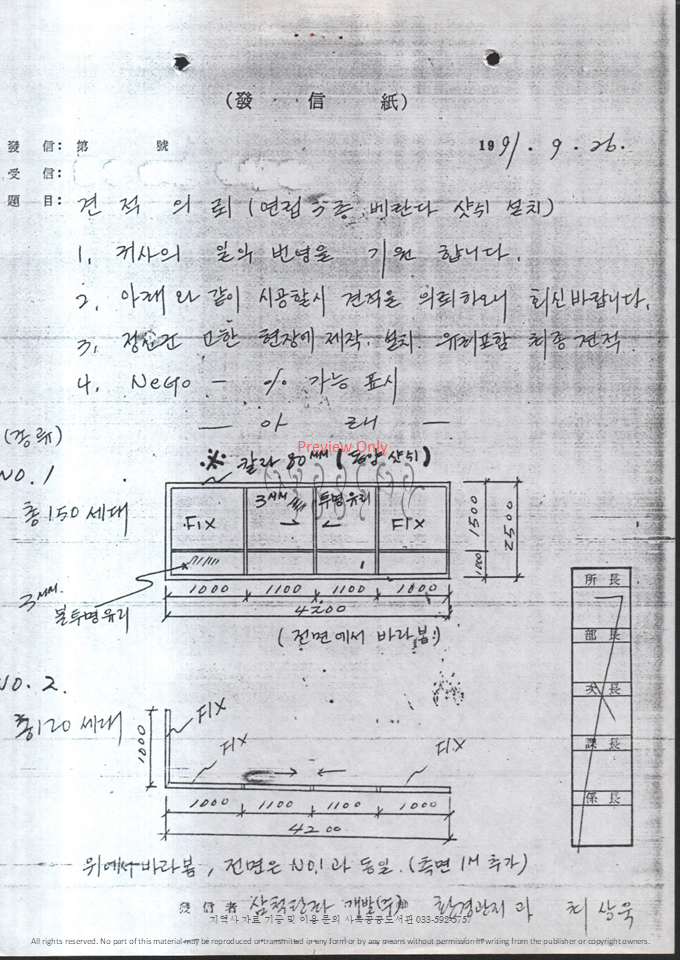 (發 信 紙)
發 信: 第 號 1991. 9. 26.
受 信:
題 目: 견적의뢰 (면접수종, 베란다 샷쉬 설치)
1. 귀사의 일익 번영을 기원 합니다.
2. 아래와 같이 시공할시 견적을 의뢰하오니 회신바랍니다.
3. 정선군 고한 현장에 제작. 설치. 유리포함 최종견적
4. NeGo - % 가능표시
— 아 래 —
(종류)
Preview Only
※ 칼라 80MM (동양 샷쉬)
NO. 1
총 150 세대
3MM 투명유리
FIX
FIX
1500
2500
1000
3MM
불투명유리
1000 1100 1100 1000
4200
(전면에서 바라봄)
所 長
部 長
次 長
課 長
係 長
NO. 2.
총 120 세대
FIX
FIX
FIX
1000
1000 1100 1100 1000
4200
위에서 바라봄, 전면은 NO.1과 동일. (측면 1M 추가)
發 信 者 삼척탄좌 개발(주) 환경관리과 최상욱
지역사 자료 기증 및 이용 문의 사북공공도서관 033-592-5757
All rights reserved. No part of this material may be reproduced or transmitted in any form or by any means without permission in writing from the publisher or copyright owners.